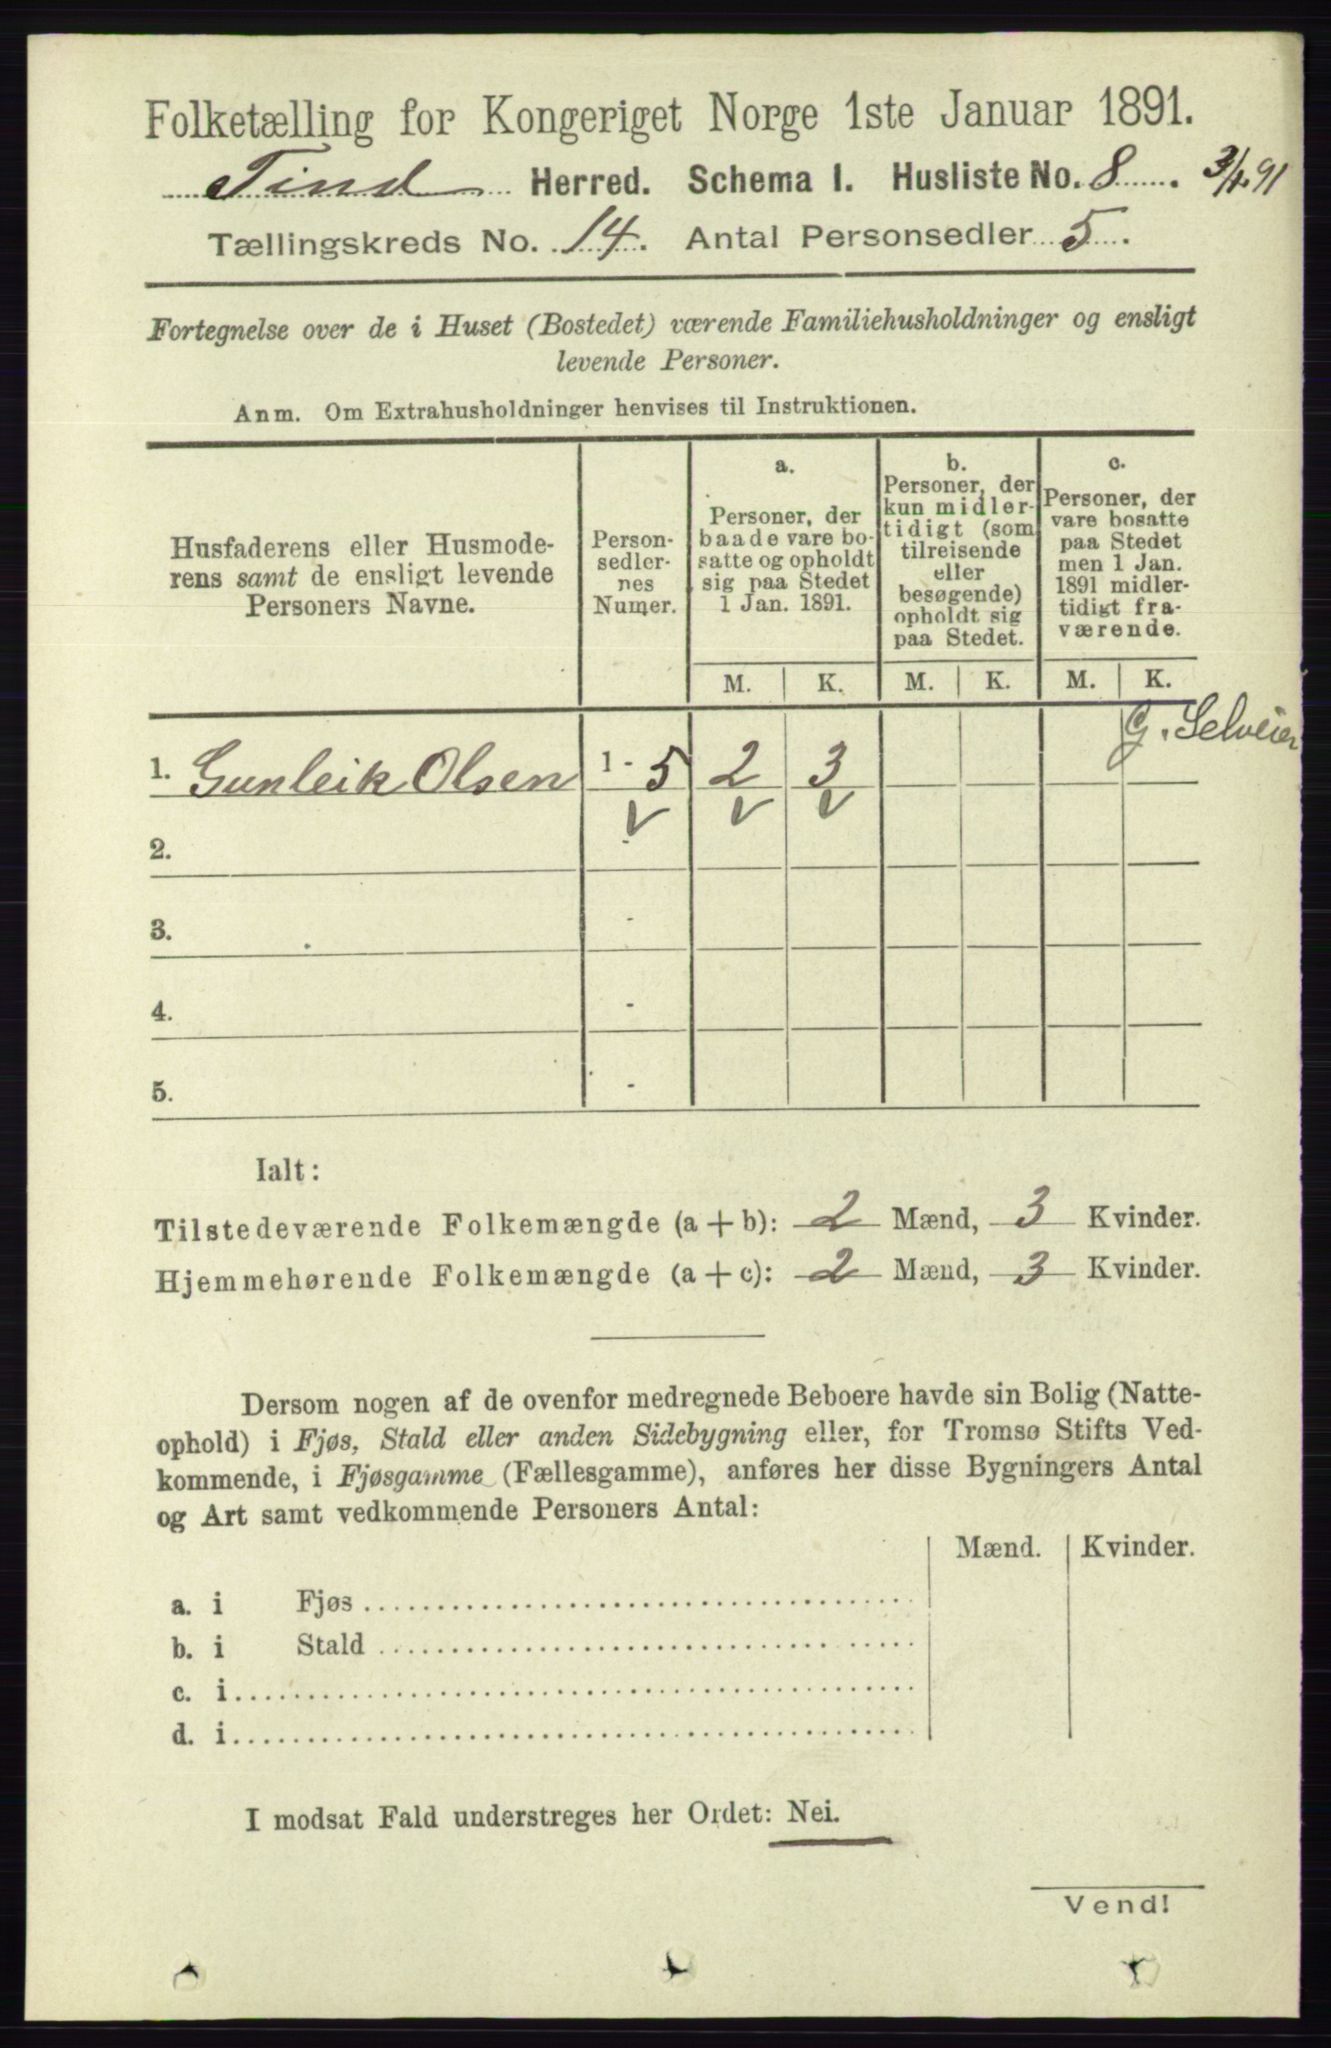 Folketælling for Kongeriget Norge 1ste Januar 1891.
Tind Herred. Schema I. Husliste No. 8. 3/4.91
Tællingskreds No. 14. Antal Personsedler 5.
Fortegnelse over de i Huset (Bostedet) værende Familiehusholdninger og ensligt
levende Personer.
Anm. Om Extrahusholdninger henvises til Instruktionen.
Husfaderens eller Husmode-
rens samt de ensligt levende
Personers Navne.
Person-
sedler-
nes
Numer.
a.
Personer, der
baade vare bo-
satte og opholdt
sig paa Stedet
1 Jan. 1891.
b.
Personer, der
kun midler-
tidigt (som
tilreisende
eller
besøgende)
opholdt sig
paa Stedet.
c.
Personer, der
vare bosatte
paa Stedet
men 1 Jan.
1891 midler-
tidigt fra-
værende.
M. K. M. K. M. K.
G. Selveier
1. Gunleik Olsen 1 - 5 2 3
V V V
2. -
3. -
4. -
5. -
Ialt:
Tilstedeværende Folkemængde (a + b): 2 Mænd, 3 Kvinder.
Hjemmehørende Folkemængde (a + c): 2 Mænd, 3 Kvinder.
Dersom nogen af de ovenfor medregnede Beboere havde sin Bolig (Natte-
ophold) i Fjøs, Stald eller anden Sidebygning eller, for Tromsø Stifts Ved-
kommende, i Fjøsgamme (Fællesgamme), anføres her disse Bygningers Antal
og Art samt vedkommende Personers Antal:
Mænd. Kvinder.
a. i Fjøs
b. i Stald
c. i
d. i
I modsat Fald understreges her Ordet: Nei.
Vend!